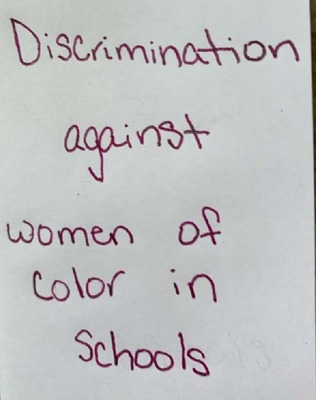 Discrimination
against
women of
color in
Schools